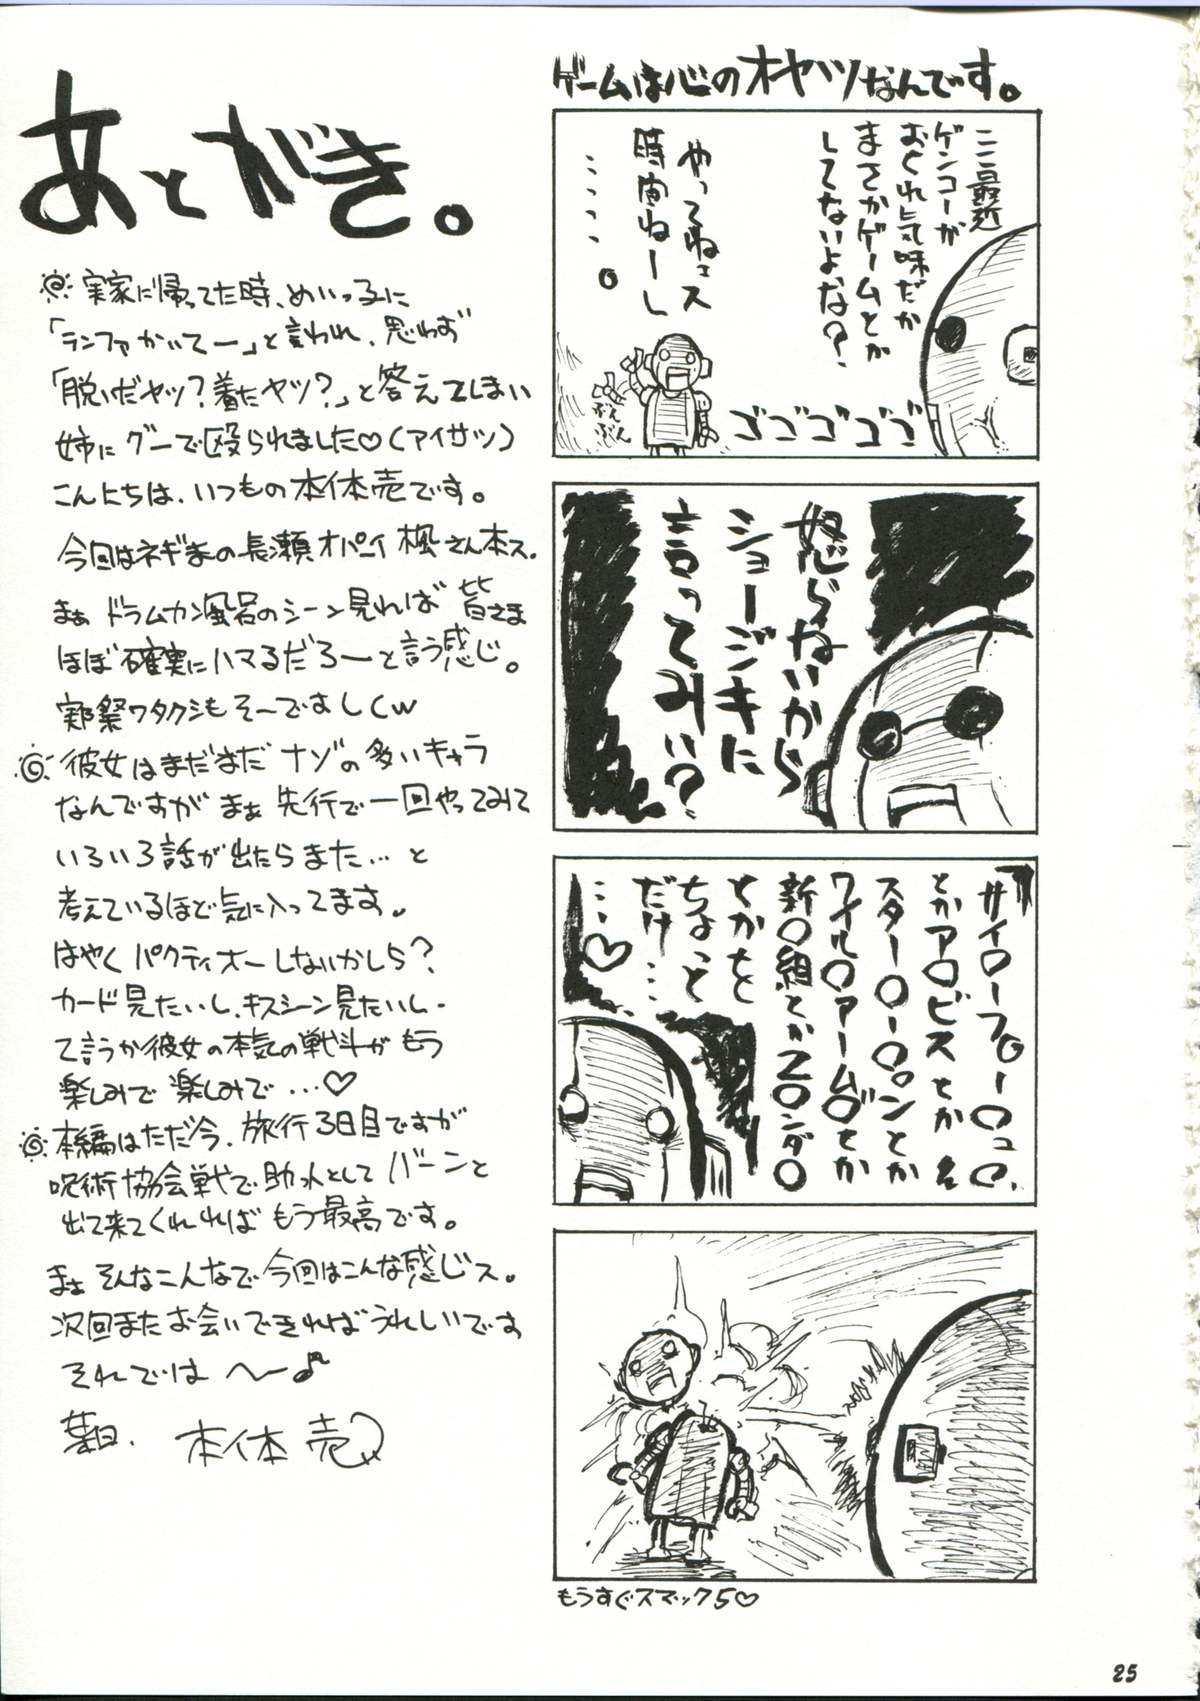 あとがき。
実家に帰ってた時、めいっ子に
「ランファかいてー」と言われ、思わず
「脱いだヤツ?着たヤツ?」と答えてしまい
姉にグーで殴られました♡(アイサツ)
こんにちは、いつもの本体売です。
今回はネギまの長瀬オパーイ楓さん本ス.
まぁドラムカン風呂のシーン見れば皆さま
ほぼ確実にハマるだろーと言う感じ。
実際ワタクシもそーでましたw
彼女はまだまだナゾの多いキャラ
なんですがまぁ先行で一回やってみて
いろいろ話が出たらまた…と
考えているほど気に入ってます。
はやくパクティオーしないかしら?
カード見たいし、キスシーン見たいし、
て言うか彼女の本気の戦斗がもう
楽しみで楽しみで…♡
本編はただ今、旅行3日目ですが
呪術協会戦で助っ人としてバーンと
出て来てくれればもう最高です。
まぁそんなこんなで今回はこんな感じス。
次回またお会いできればうれしいです
それでは〜♪
本体売
ゲームは心のオヤツなんです。
ここ最近
ゲンコーが
おくれ気味だか
まさかゲームとか
してないよな?
やってねェス
時間ねーし
・・・・・。
ぶんぶん
ゴゴゴゴゴ
怒らねいから
ショージキに
言ってみい?
サイ〇ーフ〇ー〇ュ〇、
とかア〇ビスとか
スター〇ー〇ンとか
ワイル〇アーム〇とか
新〇組とかZ〇ンダ〇
とかを
ちょっと
だけ…
…♡
もうすぐスマック5♡
25